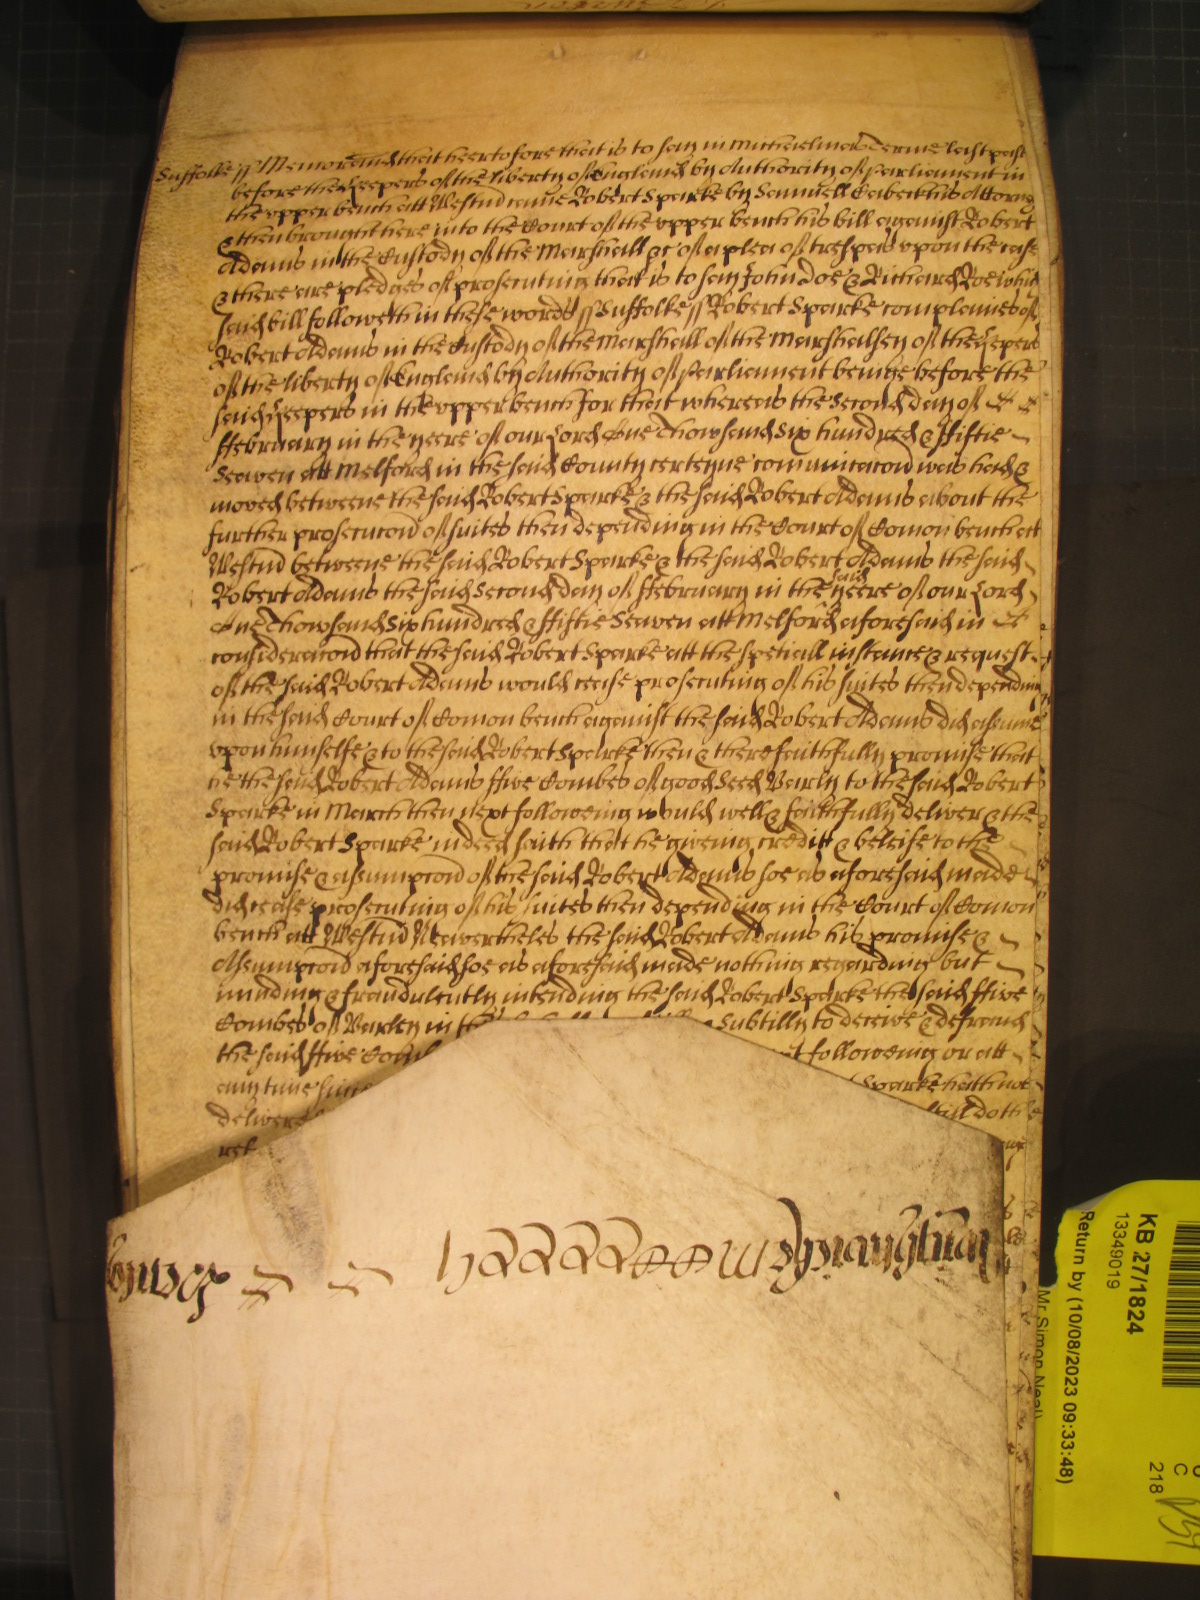 Suffolke ss Memorand that heertofore that is to say in Michaelmas Terme last past
before the Keepers of the liberty of England by Authority of Parliament in
the vpper bench att Westm came Robert Sparke by Samuell his Attorney
& then brought here into the Court of the vpper bench his bill against Robert
Adams in the Custody of the Marshall &c of a plea of trespas vpon the case
& there are pledges of prosecuting that is to say John Doe & Richard Roe which
said bill followeth in these words ss Suffolke ss Robert Sparke complaines of
Robert Adams in the Custody of the Marshall of the Marshalsey of the Keepers
of the liberty of England by Authority of Parliament beinge before the
said Keepers in the vpper bench for that whereas the Second day of
ffebruary in the yeere of our Lord One Thowsand Six hundred & ffiftie
Seaven att Melford in the said County certeyne communicacon was had &
moved betweene the said Robert Sparke & the said Robert Adams about the
further prosecucon of suites then depending in the Court of Comon bench att
Westm betweene the said Robert Sparke & the said Robert Adams the said
Robert Adams the said Second day of ffebruary in the said yeere of our Lord
One Thowsand Six hundred & ffiftie Seaven att Melford aforesaid in
consideracon that the said Robert Sparke att the speciall instance & request
of the said Robert Adams would cease prosecuting of his suites then depending
in the said Court of Comon bench against the said Robert Adams did assume
vpon himselfe & to the said Robert Sparke then & there faithfully promise that
he the said Robert Adams ffive Combes of good Seed Barly to the said Robert
Sparke in March then next following would well & faithfully deliver & the
said Robert Sparke indeed saith that he giveing creditt & beleife to the
promise & assumpcon of the said Robert Adams soe as aforesaid made
did cease prosecuting of his suites then depending in the Court of Comon
bench att Westm Neavertheles the said Robert Adams his promise &
Assumpcon aforesaid soe as aforesaid made nothing regarding but
minding & fraudulently intending the said Robert Sparke the said ffive
Combes of Barley in subtilly to deceive & defraud
the said ffive following or att
any time Sparke hath not
still doth
KB 27/1824
13349019
Return by (10/08/2023 09:33:48)
Mr Simon Neal
C
218